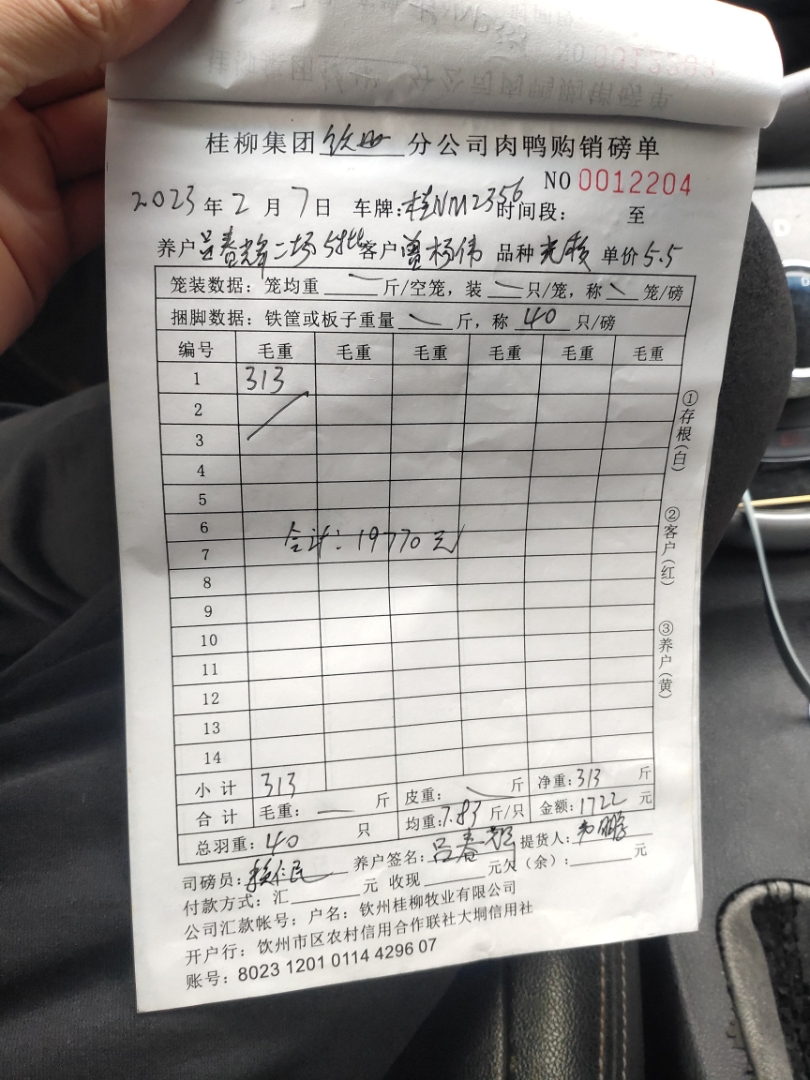 桂柳集团钦州分公司肉鸭购销磅单
NO 0012204
2023年2月7日 车牌:桂NM2356 时间段: 至
养户 吕春辉二场5批 客户 曾杨伟 品种 单价5.5
笼装数据: 笼均重 斤/空笼, 装 只/笼, 称 笼/磅
捆脚数据: 铁筐或板子重量 斤, 称 40 只/磅
编号 毛重 毛重 毛重 毛重 毛重 毛重
1 313
2
3
4
5
6
合计: 19770元
7
8
9
10
11
12
13
14
小计 313
合计 毛重: 斤 皮重: 斤 净重:313 斤
总羽重: 40 只 均重:7.83 斤/只 金额:1722 元
司磅员: 养户签名: 吕春 提货人:
付款方式: 汇 元 收现 元欠(余): 元
公司汇款帐号: 户名: 钦州桂柳牧业有限公司
开户行: 钦州市区农村信用合作联社大垌信用社
账号: 8023 1201 0114 4296 07
①存根(白)
②客户(红)
③养户(黄)